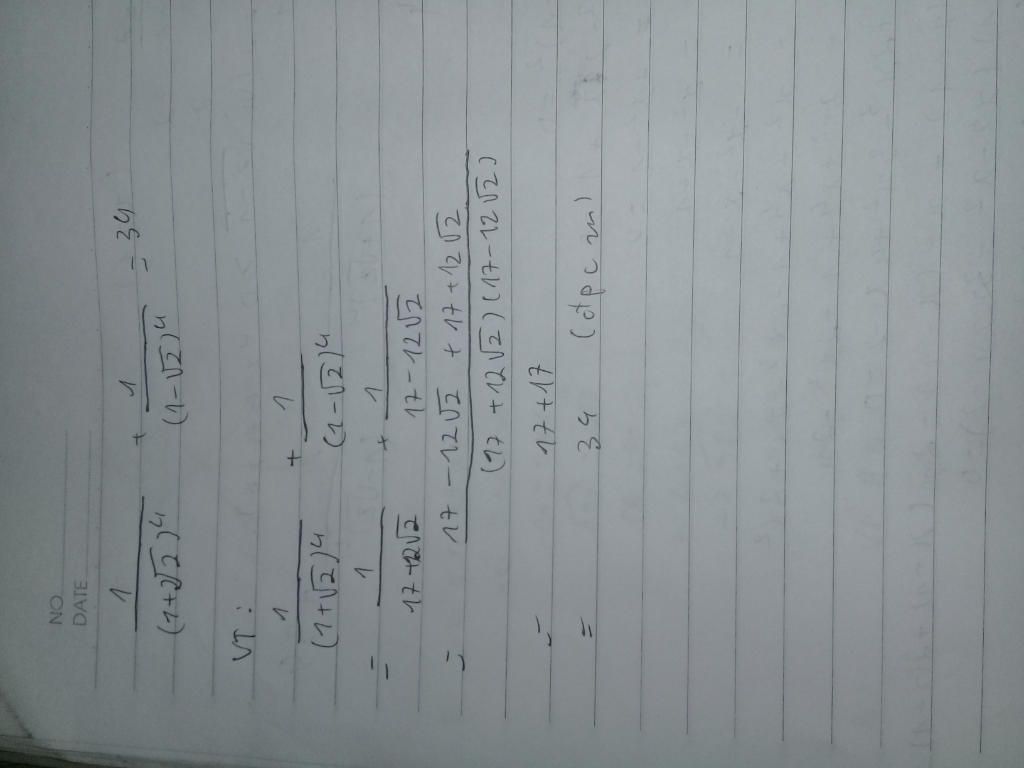 NO
DATE
1/(1+√2)⁴ + 1/(1-√2)⁴ = 34
VT:
1/(1+√2)⁴ + 1/(1-√2)⁴
= 1/(17+12√2) + 1/(17-12√2)
= (17-12√2 + 17+12√2)/((17+12√2)(17-12√2))
= 17+17
= 34 (đpcm)